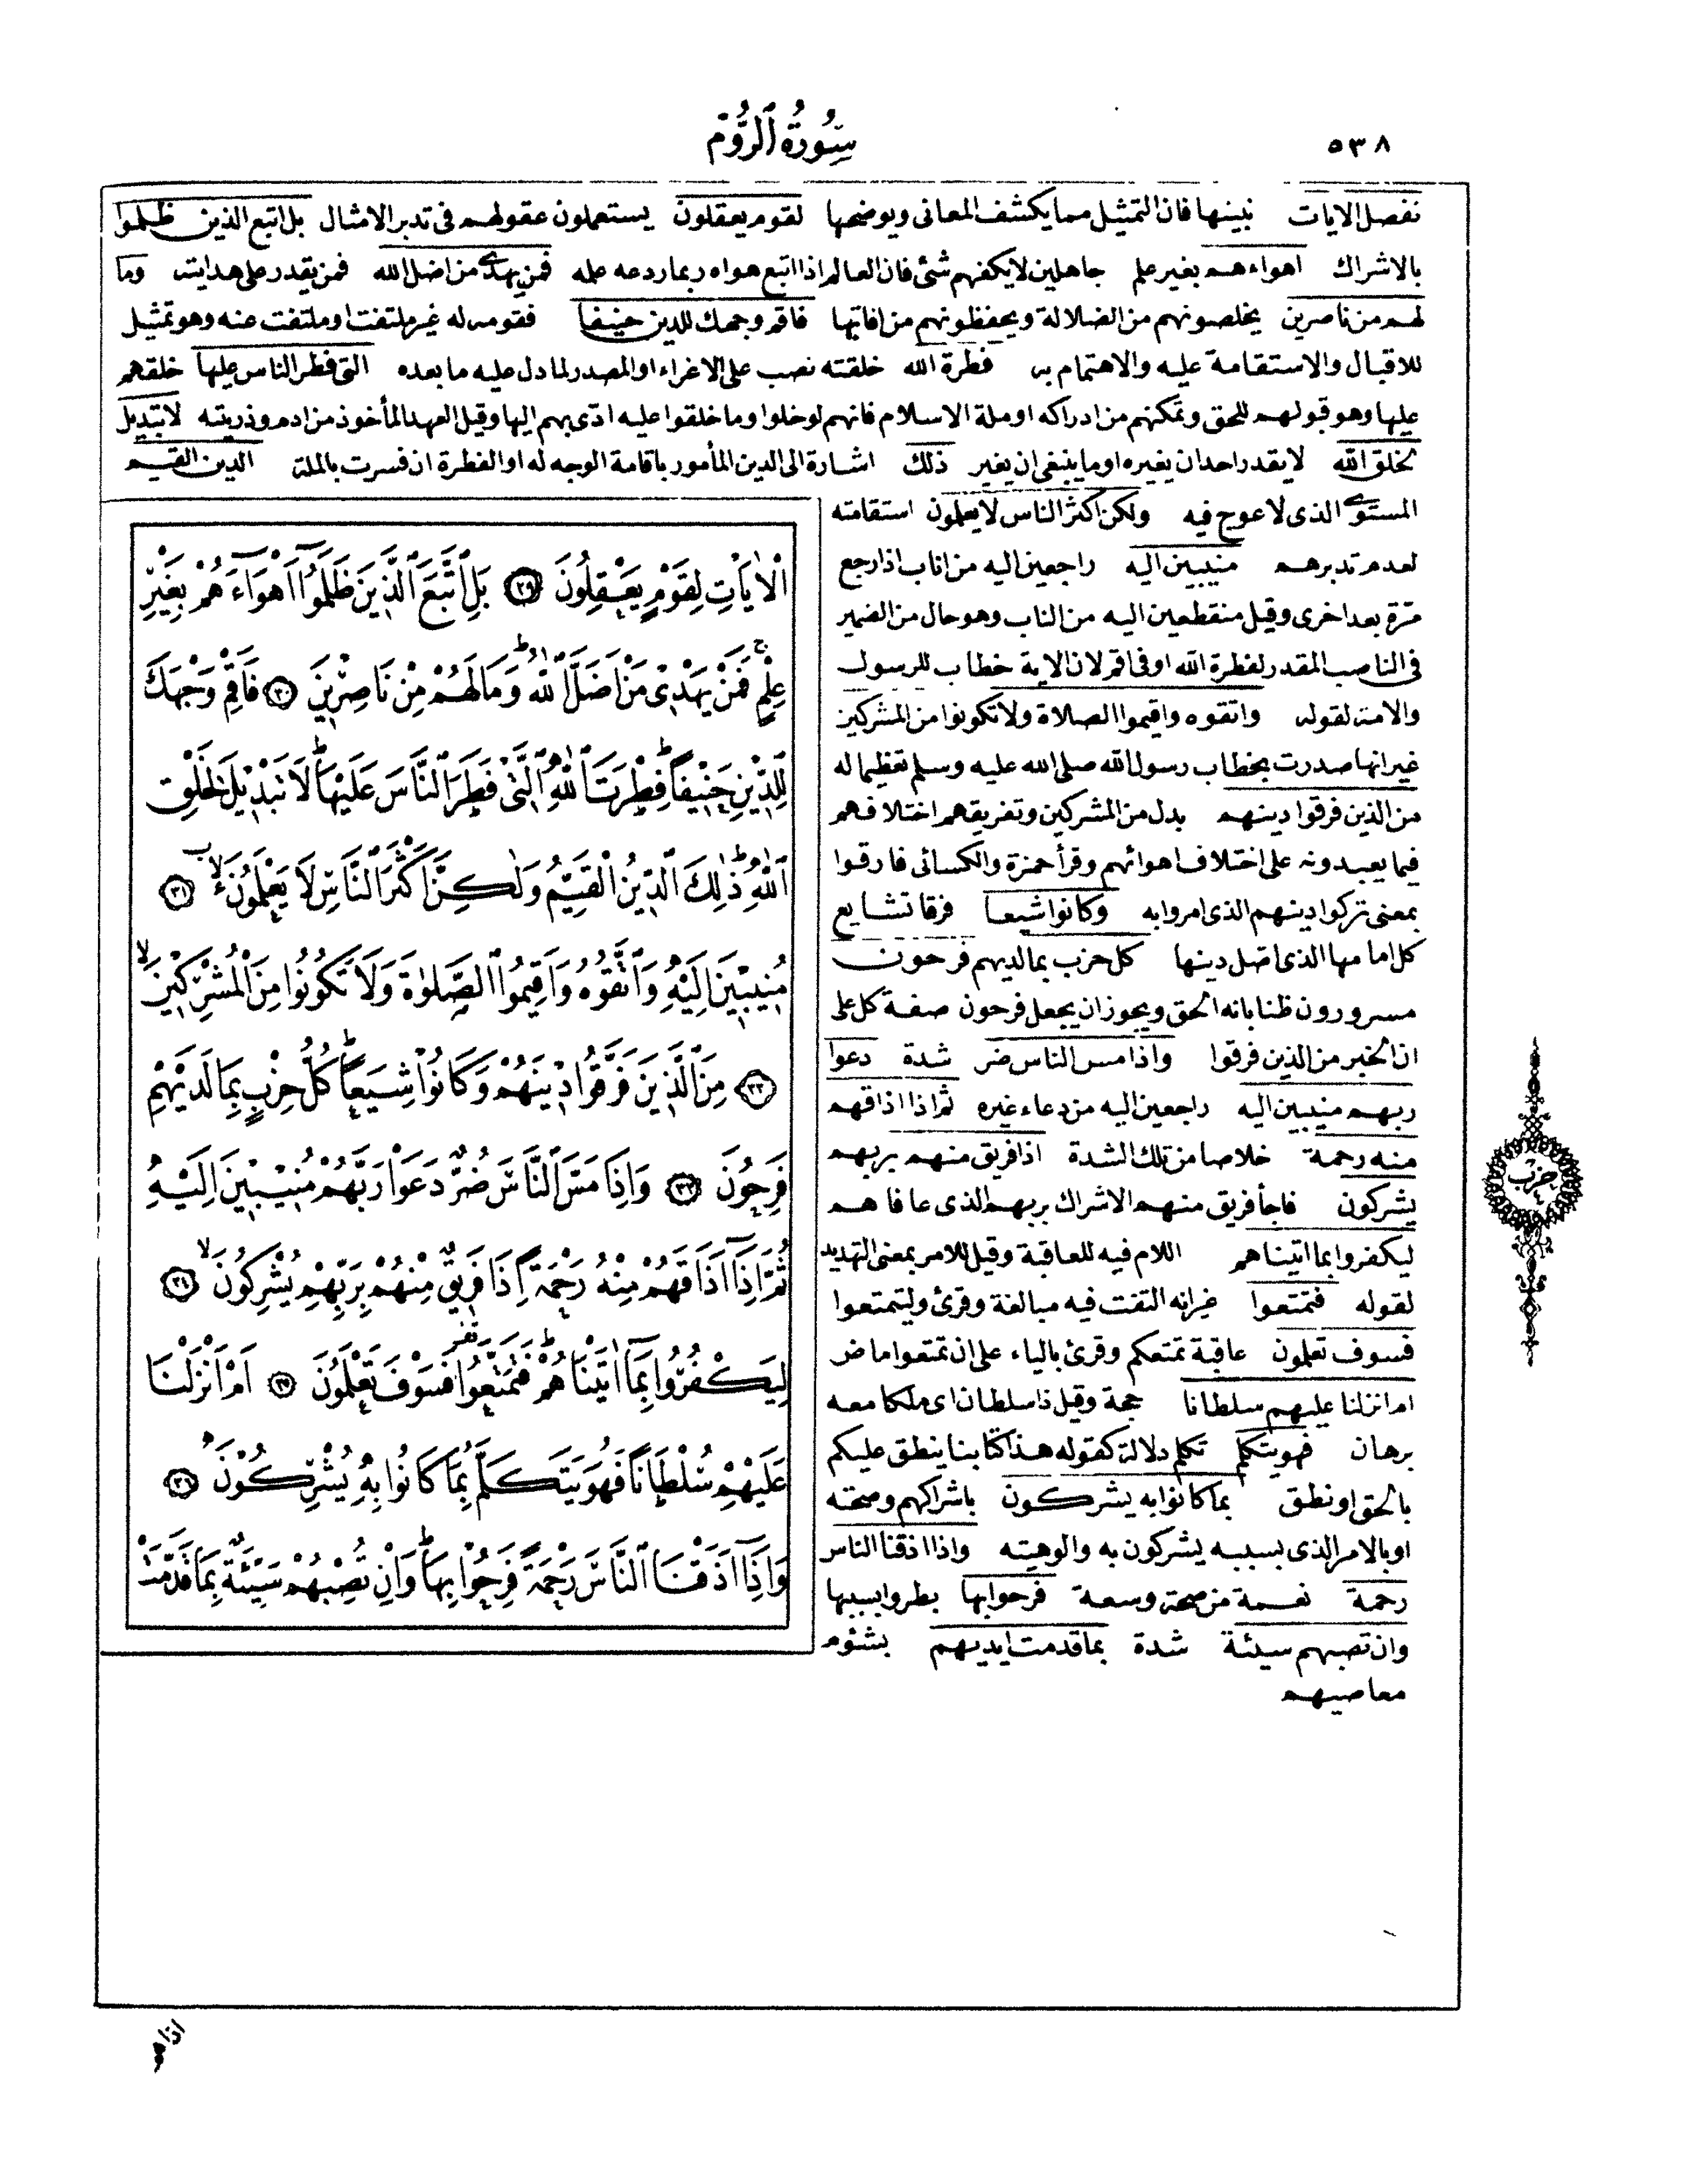 ٥٣٨
سُورَةُ ٱلرُّومِ
نفصل الايات نبينها فان التمثيل مما يكشف المعانى ويوضحها لقوم يعقلون يستعملون عقولهم فى تدبر الامثال بل اتبع الذين ظلموا
بالاشراك اهواءهم بغير علم جاهلين لا يكفهم شئ فان العالم اذا اتبع هواه ربما ردعه علمه فمن يهدى من اضل الله فمن يقدر على هدايته وما
لهم من ناصرين يخلصونهم من الضلالة ويحفظونهم من افاتها فاقم وجهك للدين حنيفا فقومه له غير ملتفت او ملتفت عنه وهو تمثيل
للاقبال والاستقامة عليه والاهتمام به فطرة الله خلقته نصب على الاغراء او المصدر لما دل عليه ما بعده التى فطر الناس عليها خلقهم
عليها وهو قبولهم للحق وتمكنهم من ادراكه او ملة الاسلام فانهم لو خلوا وما خلقوا عليه ادّى بهم اليها وقيل العهد المأخوذ من ادم وذريته لا تبديل
لخلق الله لا يقدر احد ان يغيره او ما ينبغى ان يغير ذلك اشارة الى الدين المأمور باقامة الوجه له او الفطرة ان فسرت بالملة الدين القيم
المستوى الذى لا عوج فيه ولكن اكثر الناس لا يعلمون استقامته
لعدم تدبرهم منيبين اليه راجعين اليه من اناب اذا رجع
مرّة بعد اخرى وقيل منقطعين اليه من الناب وهو حال من الضمير
فى الناصب المقدر لفطرة الله او فى اقم لان الاية خطاب للرسول
والامة لقوله واتقوه واقيموا الصلاة ولا تكونوا من المشركين
غير انها صدرت بخطاب رسول الله صلى الله عليه وسلم تعظيما له
من الذين فرقوا دينهم بدل من المشركين وتفريقهم اختلافهم
فيما يعبدونه على اختلاف اهوائهم وقرأ حمزة والكسائى فارقوا
بمعنى تركوا دينهم الذى امروا به وكانوا شيعا فرقا تشايع
كل امامها الذى اضل دينها كل حزب بما لديهم فرحون
مسرورون ظنا بانه الحق ويجوز ان يجعل فرحون صفة كل على
ان الخبر من الذين فرقوا واذا مس الناس ضر شدة دعوا
ربهم منيبين اليه راجعين اليه من دعاء غيره ثم اذا اذاقهم
منه رحمة خلاصا من تلك الشدة اذا فريق منهم بربهم
يشركون فاجأ فريق منهم الاشراك بربهم الذى عافاهم
ليكفروا بما اتيناهم اللام فيه للعاقبة وقيل للامر بمعنى التهديد
لقوله فتمتعوا غير انه التفت فيه مبالغة وقرئ وليتمتعوا
فسوف تعلمون عاقبة تمتعكم وقرئ بالياء على ان تمتعوا ماض
ام انزلنا عليهم سلطانا حجة وقيل ذا سلطان اى ملكا معه
برهان فهو يتكلم تكلم دلالة كقوله هذا كتابنا ينطق عليكم
بالحق او نطق بما كانوا به يشركون باشراكهم وصحته
او بالامر الذى بسببه يشركون به والوهيته واذا اذقنا الناس
رحمة نعمة من صحة وسعة فرحوا بها بطروا بسببها
وان تصبهم سيئة شدة بما قدمت ايديهم بشئوم
معاصيهم
ٱلْاٰيَاتِ لِقَوْمٍ يَعْقِلُونَ ٢٩ بَلِ ٱتَّبَعَ ٱلَّذِينَ ظَلَمُٓوا اَهْوَٓاءَهُمْ بِغَيْرِ
عِلْمٍ فَمَنْ يَهْدٖى مَنْ اَضَلَّ ٱللّٰهُ وَمَا لَهُمْ مِنْ نَاصِرٖينَ ٣٠ فَاَقِمْ وَجْهَكَ
لِلدّٖينِ حَنٖيفًا فِطْرَتَ ٱللّٰهِ ٱلَّتٖى فَطَرَ ٱلنَّاسَ عَلَيْهَا لَا تَبْدٖيلَ لِخَلْقِ
ٱللّٰهِ ذٰلِكَ ٱلدّٖينُ ٱلْقَيِّمُ وَلٰكِنَّ اَكْثَرَ ٱلنَّاسِ لَا يَعْلَمُونَ ٣١
مُنٖيبٖينَ اِلَيْهِ وَٱتَّقُوهُ وَاَقٖيمُوا ٱلصَّلٰوةَ وَلَا تَكُونُوا مِنَ ٱلْمُشْرِكٖينَ
٣٢ مِنَ ٱلَّذٖينَ فَرَّقُوا دٖينَهُمْ وَكَانُوا شِيَعًا كُلُّ حِزْبٍ بِمَا لَدَيْهِمْ
فَرِحُونَ ٣٣ وَاِذَا مَسَّ ٱلنَّاسَ ضُرٌّ دَعَوْا رَبَّهُمْ مُنٖيبٖينَ اِلَيْهِ
ثُمَّ اِذَٓا اَذَاقَهُمْ مِنْهُ رَحْمَةً اِذَا فَرٖيقٌ مِنْهُمْ بِرَبِّهِمْ يُشْرِكُونَ ٣٤
لِيَكْفُرُوا بِمَٓا اٰتَيْنَاهُمْ فَتَمَتَّعُوا فَسَوْفَ تَعْلَمُونَ ٣٥ اَمْ اَنْزَلْنَا
عَلَيْهِمْ سُلْطَانًا فَهُوَ يَتَكَلَّمُ بِمَا كَانُوا بِهٖ يُشْرِكُونَ ٣٦
وَاِذَٓا اَذَقْنَا ٱلنَّاسَ رَحْمَةً فَرِحُوا بِهَا وَاِنْ تُصِبْهُمْ سَيِّئَةٌ بِمَا قَدَّمَتْ
حزب
اذا هم